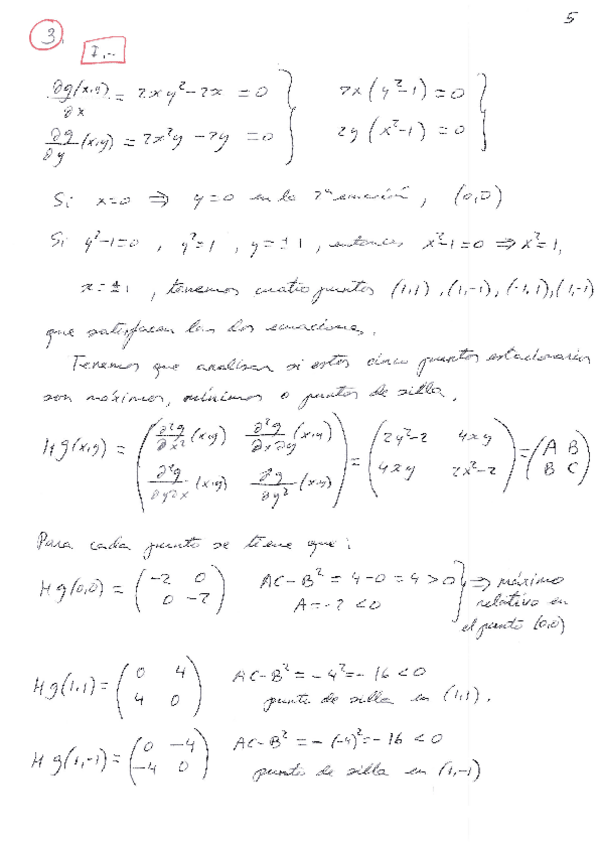 5
3.
I..
∂g(x,y)/∂x = 2xy²-2x = 0 } 2x(y²-1) = 0 }
∂g/∂y (x,y) = 2x²y - 2y = 0 } 2y(x²-1) = 0 }
Si x=0 ⇒ y=0 en la 2ª ecuación, (0,0)
Si y²-1=0, y²=1, y=±1, entonces x²-1=0 ⇒ x²=1,
x=±1, tenemos cuatro puntos (1,1), (1,-1), (-1,1), (1,-1)
que satisfacen las dos ecuaciones.
Tenemos que analizar si estos cinco puntos estacionarios
son máximos, mínimos o puntos de silla.
Hg(x,y) = ( ∂²g/∂x² (x,y) ∂²g/∂x∂y (x,y) ; ∂²g/∂y∂x (x,y) ∂²g/∂y² (x,y) ) = ( 2y²-2 4xy ; 4xy 2x²-2 ) = ( A B ; B C )
Para cada punto se tiene que:
Hg(0,0) = ( -2 0 ; 0 -2 ) AC-B² = 4-0 = 4 > 0 } ⇒ máximo
A = -2 < 0 relativo en
el punto (0,0)
Hg(1,1) = ( 0 4 ; 4 0 ) AC-B² = -4² = -16 < 0
punto de silla en (1,1).
Hg(1,-1) = ( 0 -4 ; -4 0 ) AC-B² = -(-4)² = -16 < 0
punto de silla en (1,-1)